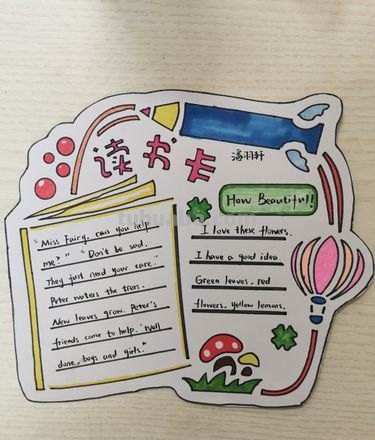 读书卡
潘羽轩
How Beautiful!!
"Miss Fairy, can you help
me?" "Don't be sad.
They just need your care."
Peter waters the trees.
New leaves grow. Peter's
friends come to help. 'Well
done, boys and girls."
I love these flowers.
I have a good idea
Green leaves. red
flowers. Yellow lemons.